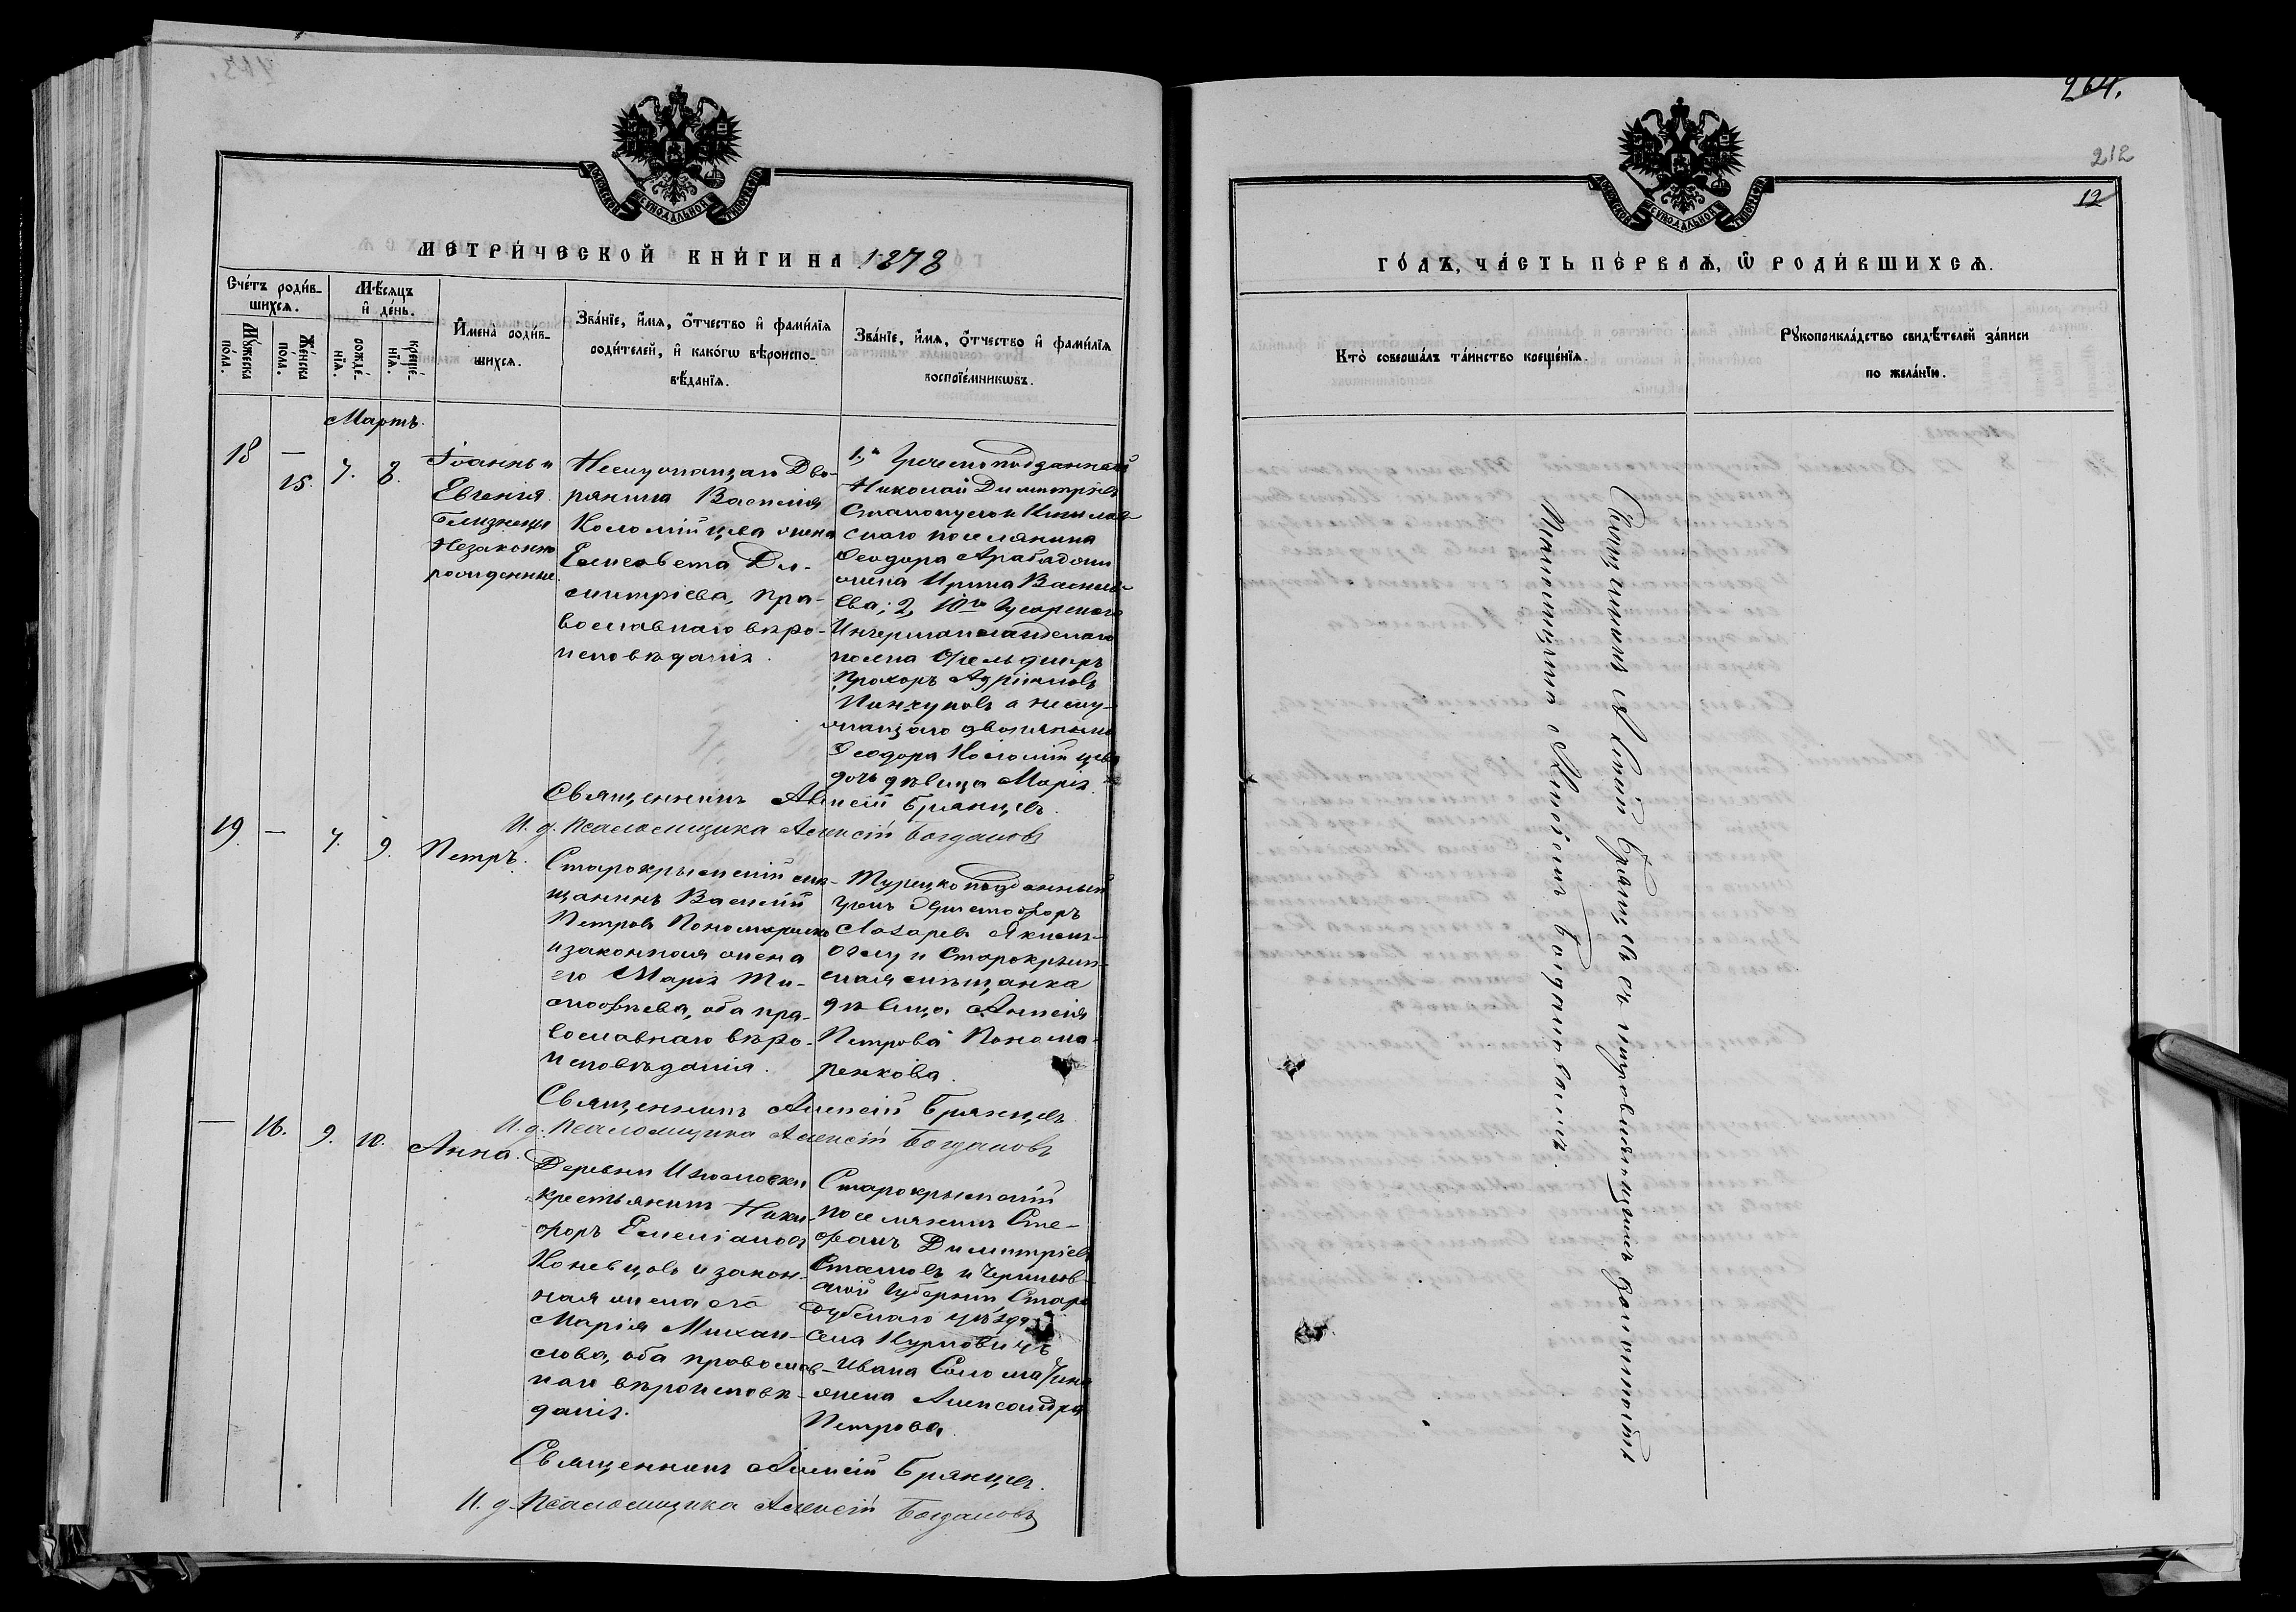 264.
212
12
МЕТРИ́ЧЕСКОЙ КНИ́ГИ НА 1878
Сче́тъ роди́в-
шихся.
Мѣ́сяцъ
и҆ де́нь.
Му́жеска по́ла.
Же́нска пола.
рожде́нїя.
креще́нїя.
И҆мена̀ роди́в-
шихся.
Зва́нїе, и҆́мя, ѻ҆́тчество и҆ фами́лїя
роди́телей, и҆ како́гѡ вѣроиспо-
вѣ́данїя.
Зва́нїе, и҆́мя, ѻ҆́тчество и҆ фами́лїя
воспрїе́мникѡвъ.
Мартъ.
18 — 15. 7. 8.
Іоаннъ и
Евгенія
близнецы
незаконно
рожденные.
Неслужащаго Дво-
рянина Василія
Коломійцева жена
Елисавета Ди-
митріева, пра-
вославнаго вѣро-
исповѣданія.
1, Греческоподданный
Николай Димитріевъ
поселянина
Ѳеодора
жена Ирина Василь-
ева; 2, 10го Гусарскаго
Ингерманландскаго
полка Фельдшеръ
Прохоръ
и неслу-
жащаго дворянина
Ѳеодора Коломійцева
дочь дѣвица Марія.
Священникъ Алексій Брянцевъ.
И. д. Псаломщика Алексѣй Богдановъ
19. — 7. 9. Петръ.
Старокрымскій мѣ-
щанинъ Василій
Петровъ Пономаренко
и законная жена
его Марія Ти-
моѳѣева, оба пра-
вославнаго вѣро-
исповѣданія.
Турецкоподданный
грекъ Христофоръ
Лазаревъ
и Старокрым-
ская мѣщанка
дѣвица Анисія
Петрова Понома-
ренкова.
Священникъ Алексій Брянцевъ.
И. д. Псаломщика Алексѣй Богдановъ
— 16. 9. 10. Анна.
Деревни Изюмовки
крестьянинъ Ники-
форъ Емельяновъ
Коневцовъ и закон-
ная жена его
Марія Михаи-
лова, оба православ-
наго вѣроисповѣ-
данія.
Старокрымскій
поселянинъ Сте-
фанъ Димитріевъ
Стамовъ и Чернигов-
ской Губерніи Старо
дубскаго уѣзда
села Курковичъ
Ивана
жена Александра
Петрова.
Священникъ Алексій Брянцевъ.
И. д. Псаломщика Алексѣй Богдановъ
ГО́ДЪ, ЧА́СТЬ ПЕ́РВАЯ, Ѡ҆ РОДИ́ВШИХСЯ.
Кто̀ соверша́лъ та́инство креще́нїя.
Рꙋкоприкла́дство свидѣ́телей за́писи
по жела́нїю.
Священникъ Алексій Брянцевъ съ исправляющимъ должность
Псаломщика Алексѣемъ Богдановымъ.